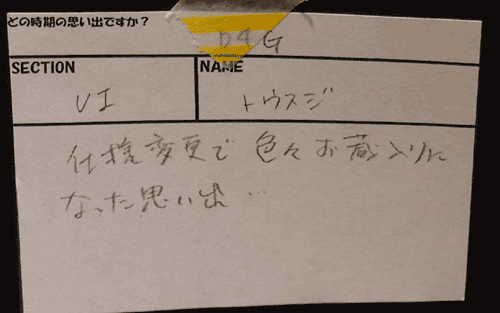 どの時期の思い出ですか?
D4G
SECTION
NAME
UI
トウスジ
仕様変更で色々お蔵入りに
なった思い出…